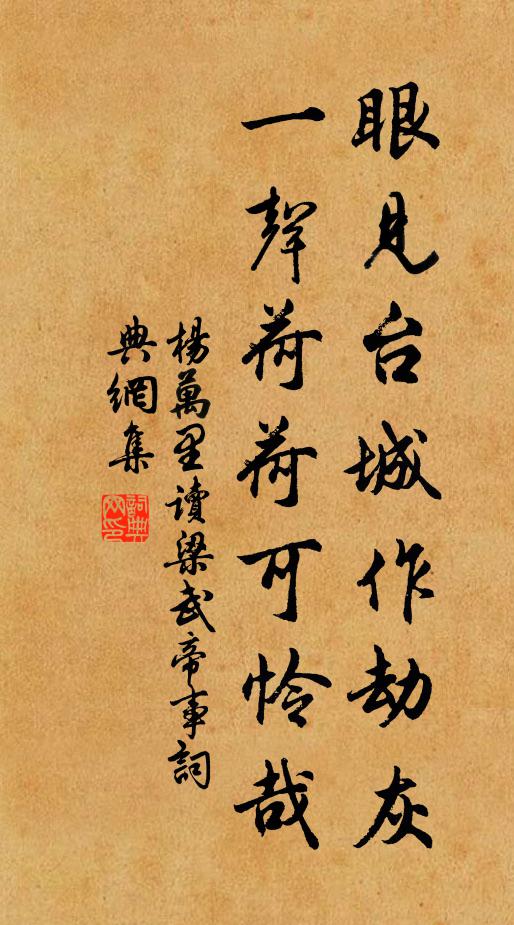 眼見台城作劫灰
一聲荷荷可怜哉
楊萬里讀梁武帝事詞
典網集
詞典網印